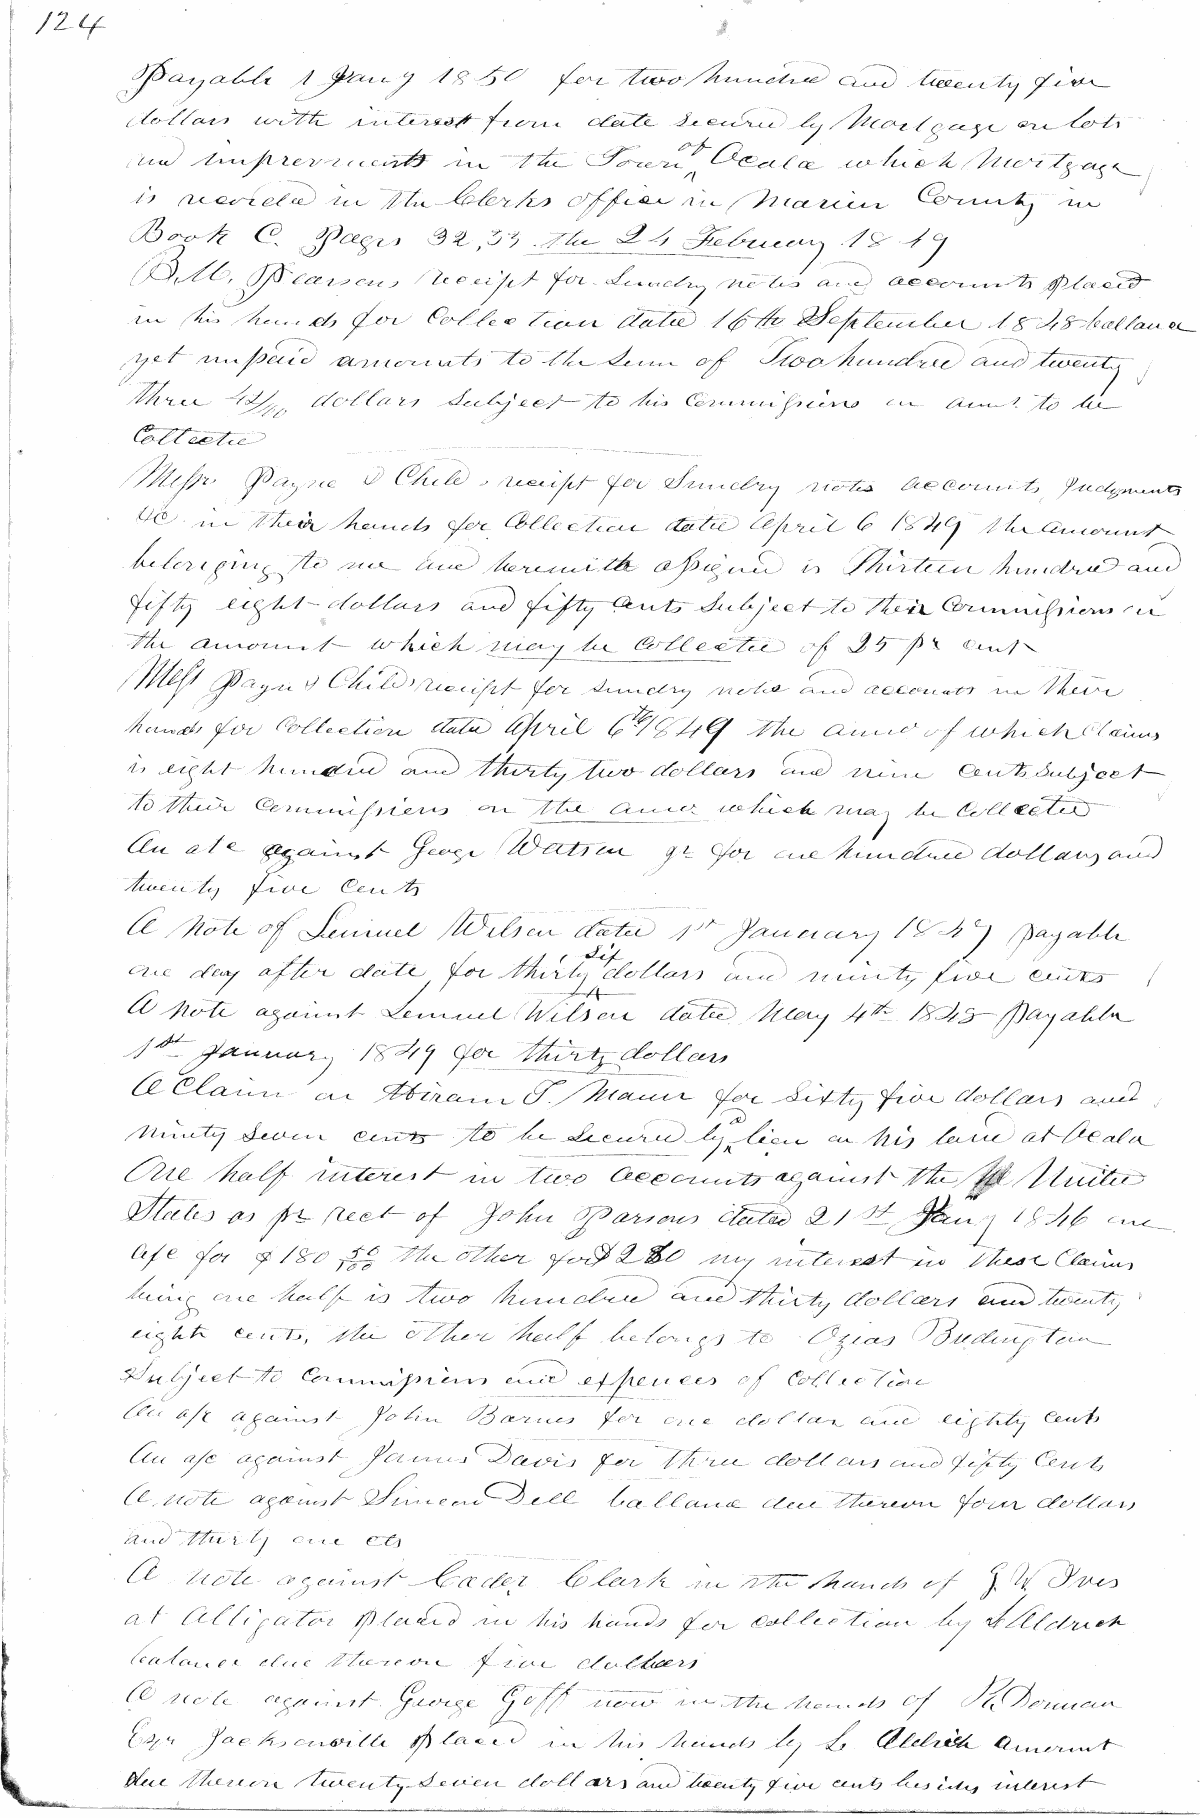 124
Payable 1 Jany 1850 for two hundred and twenty five
dollars with interest from date secured by Mortgage on lots
and improvements in the Town of Ocala which Mortgage
is recorded in the Clerks office in Marion County in
Book C. Pages 32, 33 the 24 February 1849
B. M. Pearsons receipt for Sundry notes and accounts placed
in his hands for Collection dated 16th September 1848 ballance
yet unpaid amounts to the sum of Two hundred and twenty
three dollars subject to his Commissions on amt to be
Collected
Messr Payne & Childs receipt for Sundry notes accounts, Judgments
&c in their hands for Collection dated April 6 1849 the amount
belonging to me and herewith assigned is Thirteen hundred and
fifty eight dollars and fifty cents Subject to their Commissions on
the amount which may be Collected of 25 pr cent
Mess Payn & Childs receipt for sundry notes and accounts in their
hands for Collection dated April 6th 1849 the amo of which Claims
is eight hundred and thirty two dollars and nine cents subject
to their Commissions on the amo which may be Collected
An a/c against George Watson jr for one hundred dollars and
twenty five cents
A note of Lemuel Wilson dated 1st January 1847 payable
one day after date for thirty six dollars and ninety five cents
A note against Lemuel Wilson dated May 4th 1848 Payable
1st January 1849 for thirty dollars
A Claim on Hiram T. Mann for sixty five dollars and
ninety seven cents to be secured by a lien on his land at Ocala
One half interest in two accounts against the United
States as pr rect of John Parsons dated 21st Jany 1846 one
a/c for $180 56/100 the other for $280 my interest in these Claims
being one half is two hundred and thirty dollars and twenty
eight cents, the other half belongs to Ozias Budington
Subject to Commissions and expences of Collection
An a/c against John Barnes for one dollar and eighty cents
An a/c against James Davis for three dollars and fifty Cents
A note against Simeon Dell ballance due thereon four dollars
and thirty one cts
A note against Cader Clark in the hands of J. W Ives
at Alligator placed in his hands for collection by L Aldrich
balance due thereon five dollars
A note against George Goff now in the hands of Dorman
Esqr Jacksonville placed in his hands by L Aldrich amount
due thereon twenty seven dollars and twenty five cents besides interest